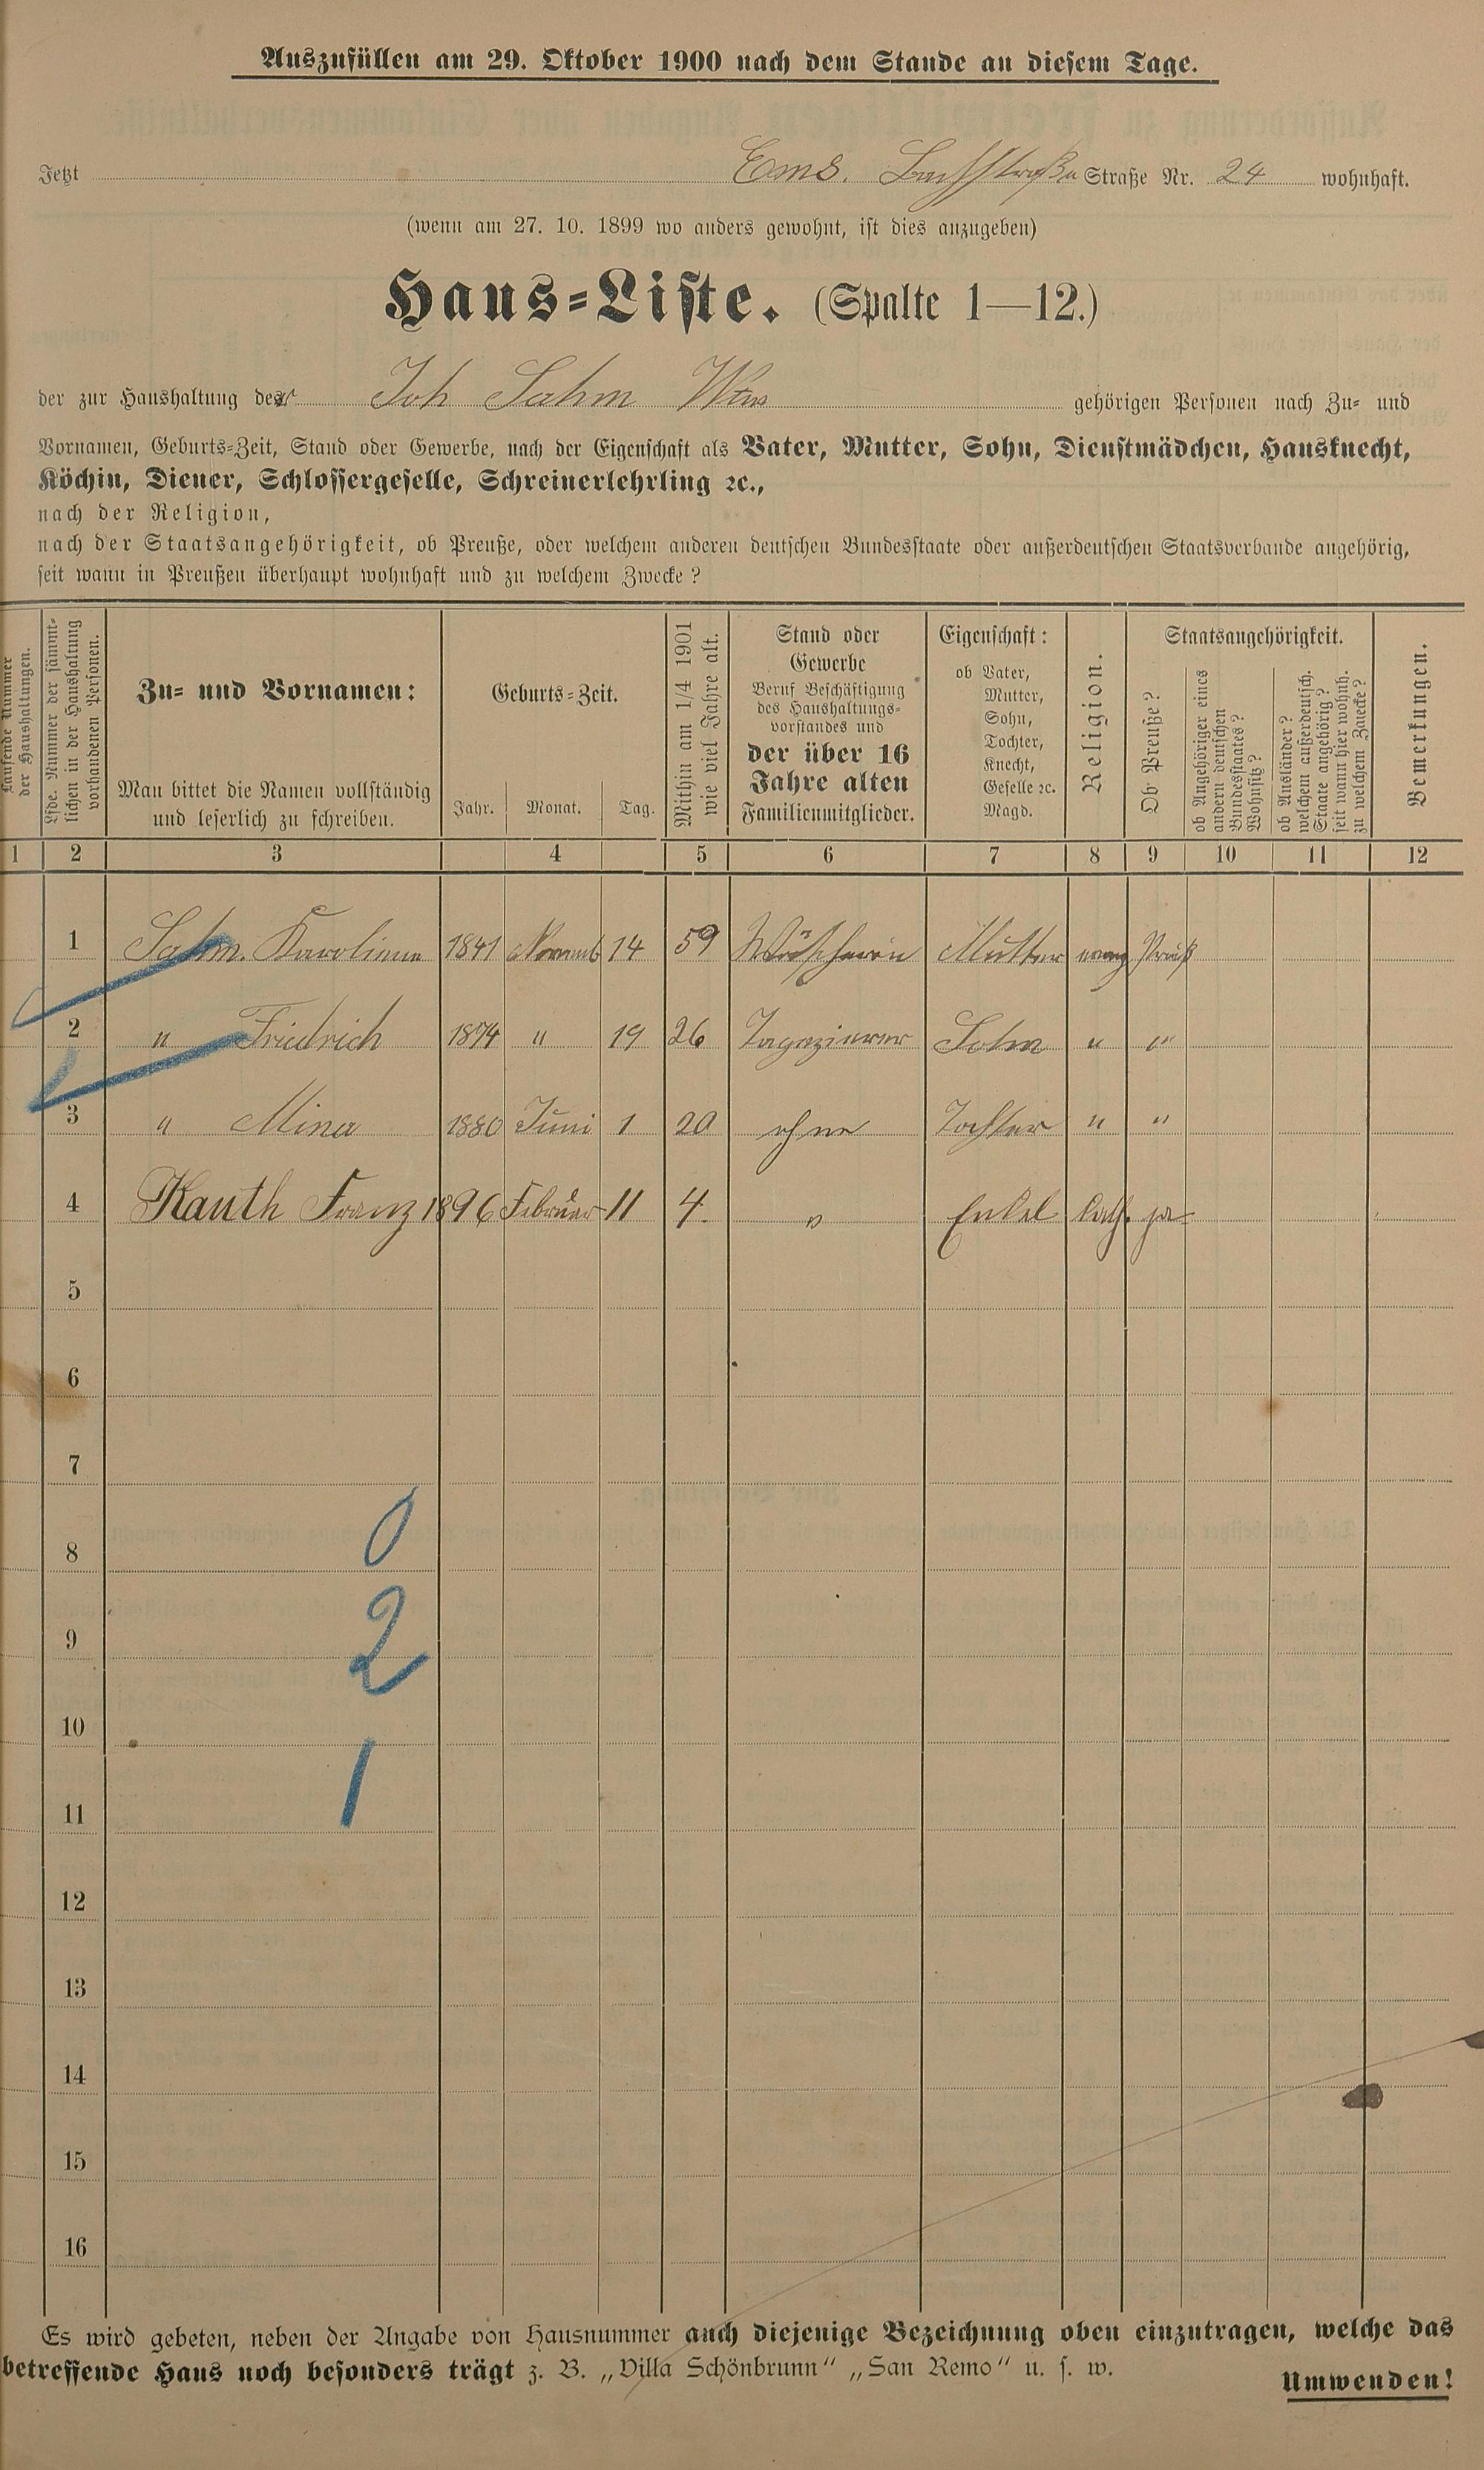 Auszufüllen am 29. Oktober 1900 nach dem Stande an diesem Tage.
Jetzt Ems. Bachstraße Straße Nr. 24 wohnhaft.
(wenn am 27. 10. 1899 wo anders gewohnt, ist dies anzugeben)
Haus-Liste. (Spalte 1—12.)
der zur Haushaltung der Joh Sahm Wtw gehörigen Personen nach Zu- und
Vornamen, Geburts-Zeit, Stand oder Gewerbe, nach der Eigenschaft als Vater, Mutter, Sohn, Dienstmädchen, Hausknecht,
Köchin, Diener, Schlossergeselle, Schreinerlehrling ꝛc.,
nach der Religion,
nach der Staatsangehörigkeit, ob Preuße, oder welchem anderen deutschen Bundesstaate oder außerdeutschen Staatsverbande angehörig,
seit wann in Preußen überhaupt wohnhaft und zu welchem Zwecke?
Laufende Nummer
der Haushaltungen.
Lfde. Nummer der sämmt-
lichen in der Haushaltung
vorhandenen Personen.
Zu- und Vornamen:
Man bittet die Namen vollständig
und leserlich zu schreiben.
Geburts-Zeit.
Jahr. Monat. Tag.
Mithin am 1/4 1901
wie viel Jahre alt.
Stand oder
Gewerbe
Beruf Beschäftigung
des Haushaltungs-
vorstandes und
der über 16
Jahre alten
Familienmitglieder.
Eigenschaft:
ob Vater,
Mutter,
Sohn,
Tochter,
Knecht,
Geselle ꝛc.
Magd.
Religion.
Staatsangehörigkeit.
Ob Preuße?
ob Angehöriger eines
andern deutschen
Bundesstaates?
Wohnsitz?
ob Ausländer?
welchem außerdeutsch.
Staate angehörig?
seit wann hier wohnh.
zu welchem Zwecke?
Bemerkungen.
1 2 3 4 5 6 7 8 9 10 11 12
1 Sahm. Karoline 1841 Novemb 14 59 Wäscherin Mutter evang Preuß
2 " Friedrich 1874 " 19 26 Sohn " "
3 " Mina 1880 Juni 1 20 ohne Tochter " "
4 Kauth Franz 1896 Februar 11 4. " Enkel kath. ja
5
6
7
8 0
9 2
10
11 1
12
13
14
15
16
Es wird gebeten, neben der Angabe von Hausnummer auch diejenige Bezeichnung oben einzutragen, welche das
betreffende Haus noch besonders trägt z. B. „Villa Schönbrunn“ „San Remo“ u. s. w.
Umwenden!